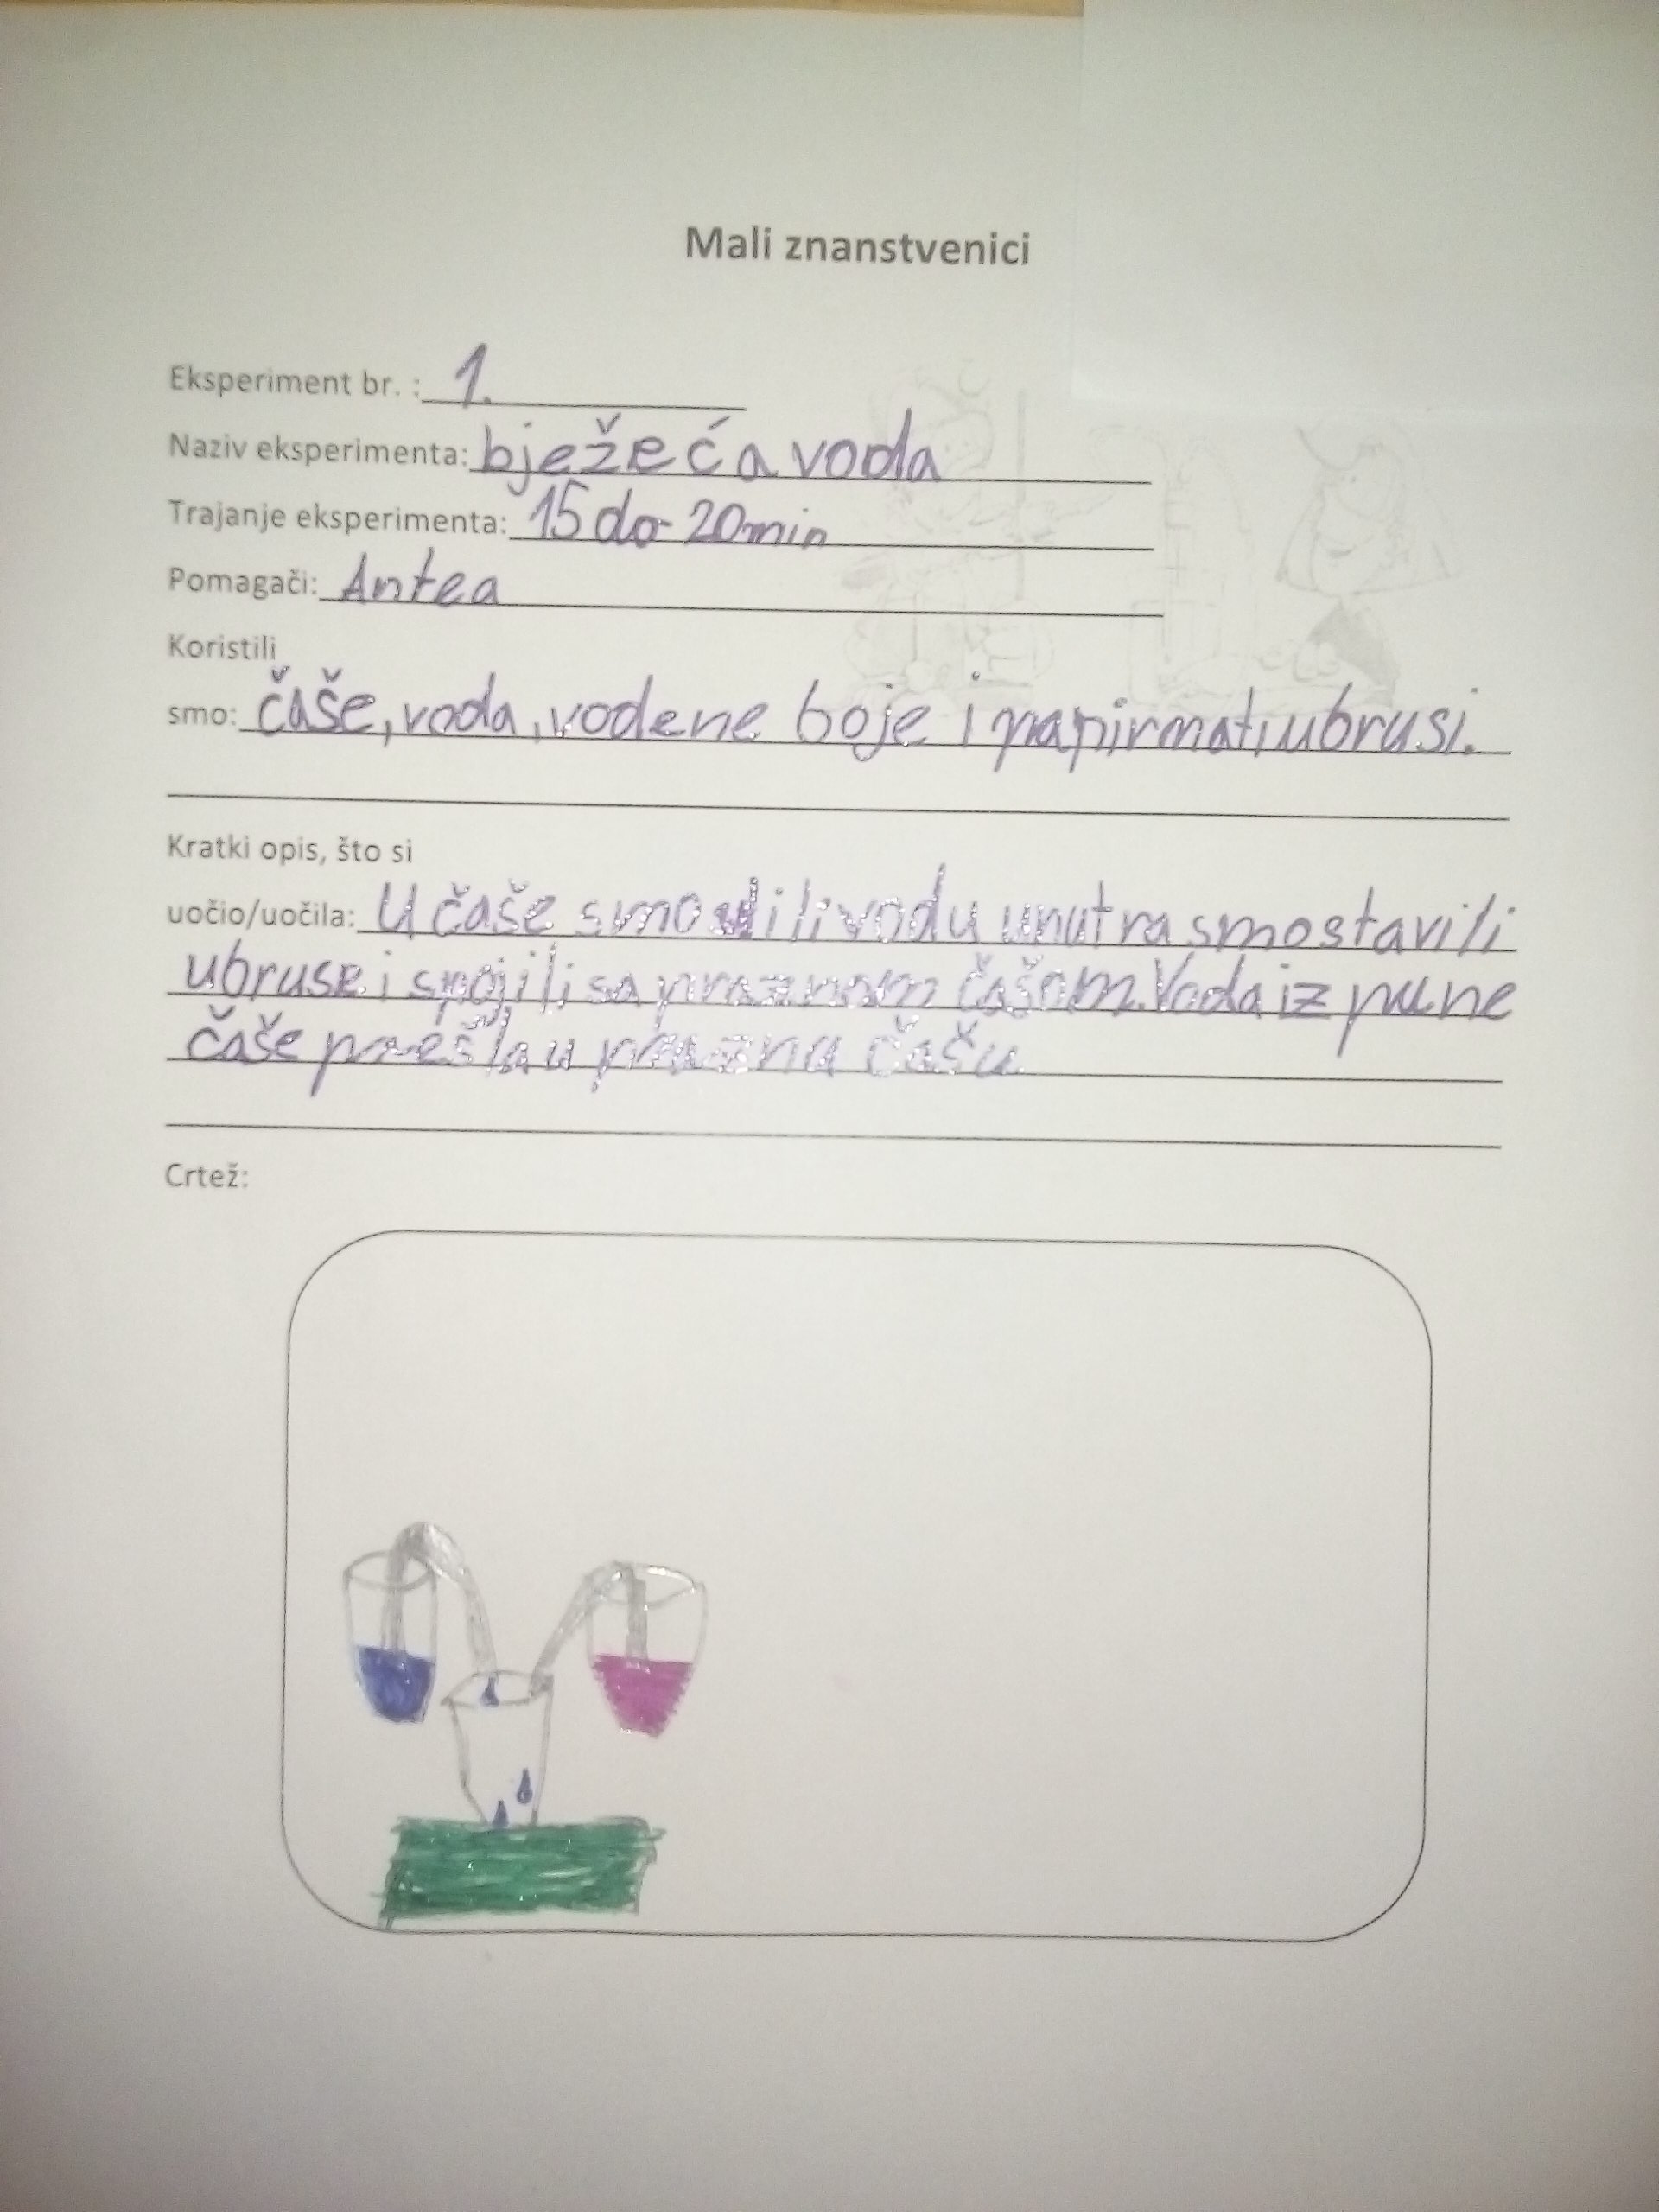 Mali znanstvenici
Eksperiment br. : 1.
Naziv eksperimenta: bježeća voda
Trajanje eksperimenta: 15 do 20 min
Pomagači: Antea
Koristili
smo: čaše, voda, vodene boje i papirnati ubrusi.
Kratki opis, što si
uočio/uočila: U čaše smo ulili vodu unutra smo stavili
ubruse i spojili sa praznom čašom. Voda iz pune
čaše prešla u praznu čašu
Crtež: